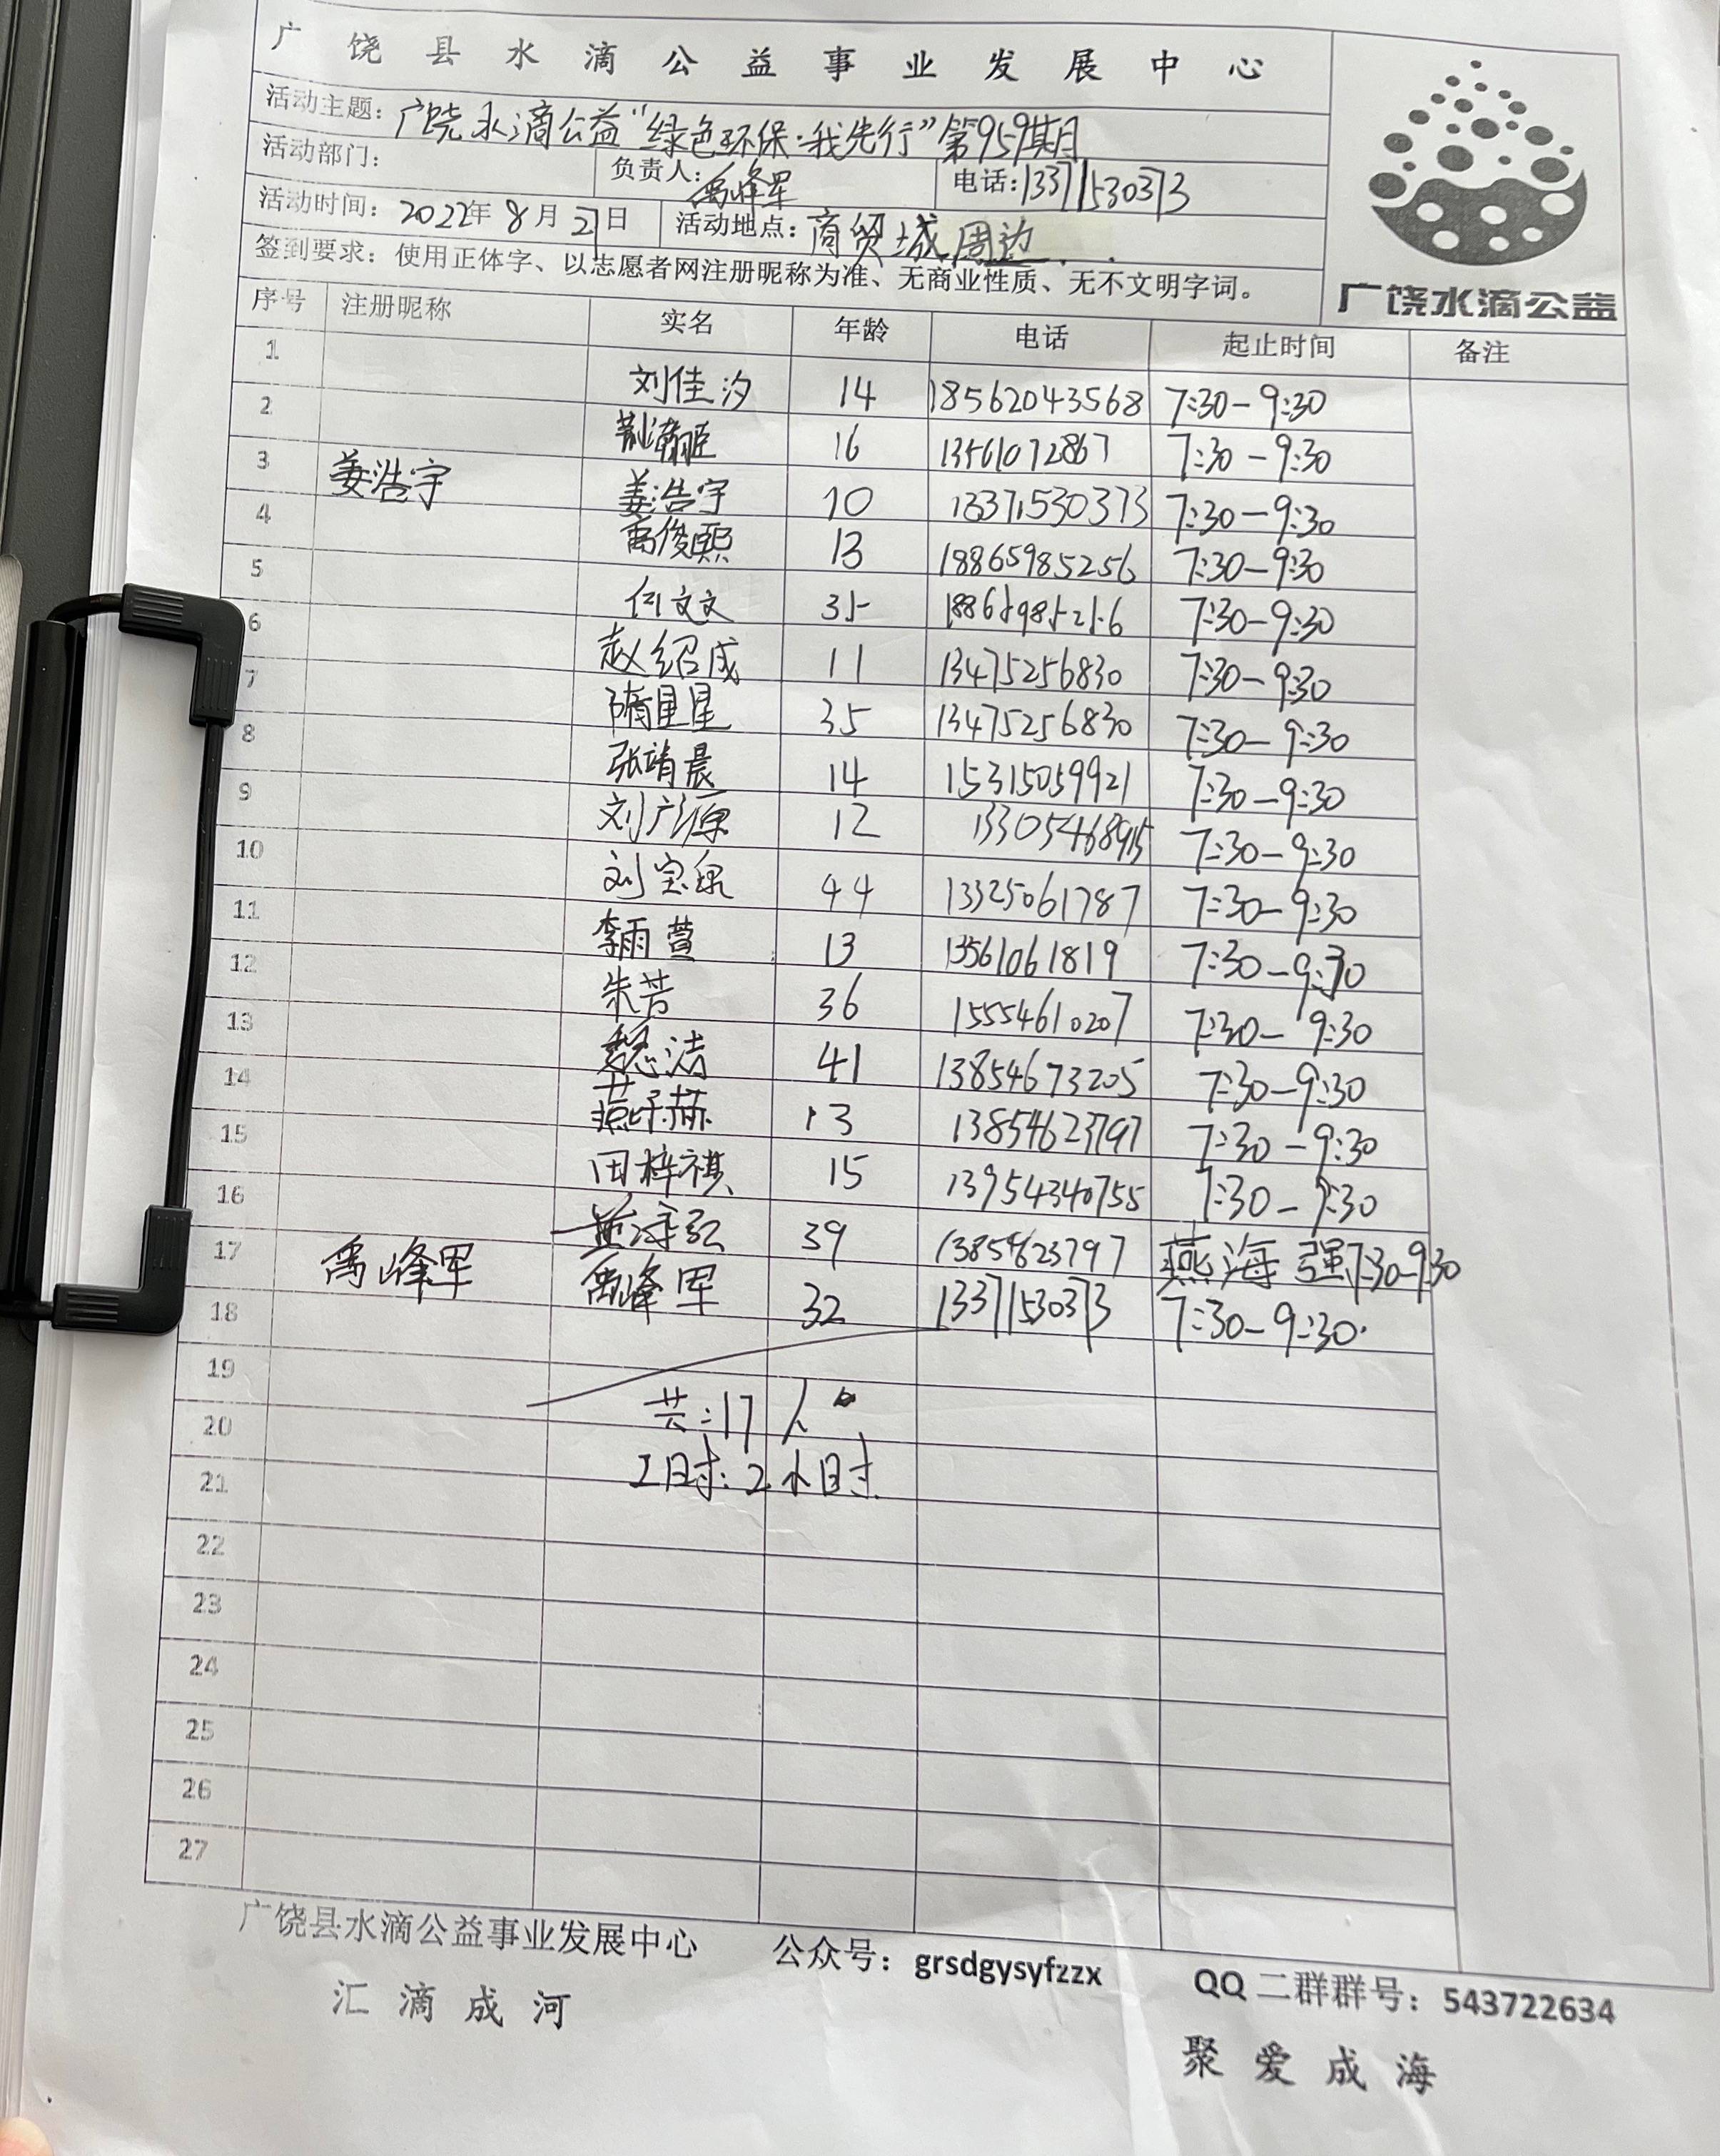 广饶县水滴公益事业发展中心
活动主题：广饶水滴公益“绿色环保·我先行”第959期
活动部门： 负责人：禹峰军 电话：13371530373
活动时间：2022年8月21日 活动地点：商贸城周边
签到要求：使用正体字、以志愿者网注册昵称为准、无商业性质、无不文明字词。
广饶水滴公益
序号 注册昵称 实名 年龄 电话 起止时间 备注
1 刘佳汐 14 18562043568 7:30-9:30
2 16 13561072867 7:30-9:30
3 姜浩宇 姜浩宇 10 13371530373 7:30-9:30
4 禹俊熙 13 18865985256 7:30-9:30
5 何文文 35 18865985256 7:30-9:30
6 赵绍成 11 13475256830 7:30-9:30
7 隋星星 35 13475256830 7:30-9:30
8 张靖晨 14 15315059921 7:30-9:30
9 刘广源 12 7:30-9:30
10 刘宝泉 44 13325061787 7:30-9:30
11 李雨萱 13 13561061819 7:30-9:30
12 朱芳 36 15554610207 7:30-9:30
13 魏洁 41 13854673205 7:30-9:30
14 13 13854623797 7:30-9:30
15 田梓祺 15 13954340755 7:30-9:30
16 39 13854623797 燕海强 7:30-9:30
17 禹峰军 禹峰军 32 13371530373 7:30-9:30
18
19
共:17人
20
工时:2小时
21
22
23
24
25
26
27
广饶县水滴公益事业发展中心 公众号：grsdgysyfzzx QQ二群群号：543722634
汇滴成河 聚爱成海